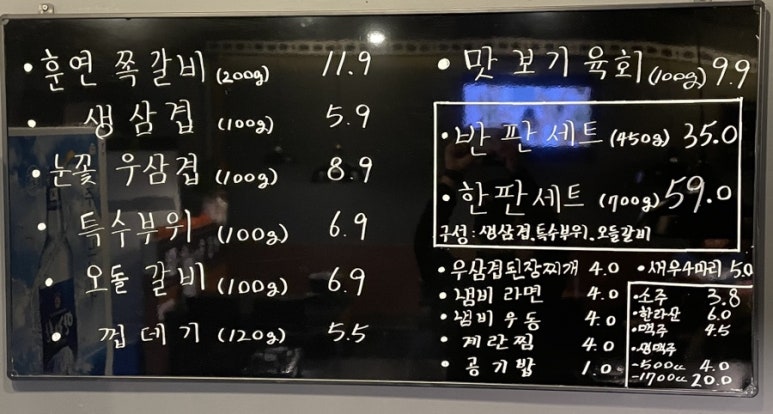 • 훈연 쪽갈비 (200g) 11.9
• 생삼겹 (100g) 5.9
• 눈꽃 우삼겹 (100g) 8.9
• 특수부위 (100g) 6.9
• 오돌갈비 (100g) 6.9
• 껍데기 (120g) 5.5
• 맛보기 육회 (100g) 9.9
• 반판세트 (450g) 35.0
• 한판세트 (700g) 59.0
구성 : 생삼겹, 특수부위, 오돌갈비
• 우삼겹된장찌개 4.0
• 냄비 라면 4.0
• 냄비 우동 4.0
• 계란찜 4.0
• 공기밥 1.0
• 새우4마리 5.0
• 소주 3.8
• 한라산 6.0
• 맥주 4.5
• 생맥주
-500cc 4.0
-1700cc 20.0